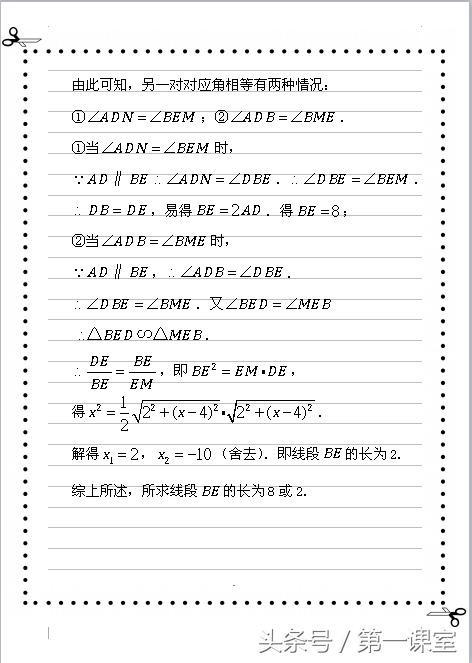 由此可知，另一对对应角相等有两种情况：
①∠ADN＝∠BEM；②∠ADB＝∠BME．
①当∠ADN＝∠BEM时，
∵AD∥BE∴∠ADN＝∠DBE．∴∠DBE＝∠BEM．
∴DB＝DE，易得BE＝2AD．得BE＝8；
②当∠ADB＝∠BME时，
∵AD∥BE，∴∠ADB＝∠DBE．
∴∠DBE＝∠BME．又∠BED＝∠MEB
∴△BED∽△MEB．
∴DE/BE＝BE/EM，即BE²＝EM•DE，
得x²＝1/2√(2²＋(x－4)²)•√(2²＋(x－4)²)．
解得x₁＝2，x₂＝－10（舍去）．即线段BE的长为2.
综上所述，所求线段BE的长为8或2.
头条号 / 第一课室